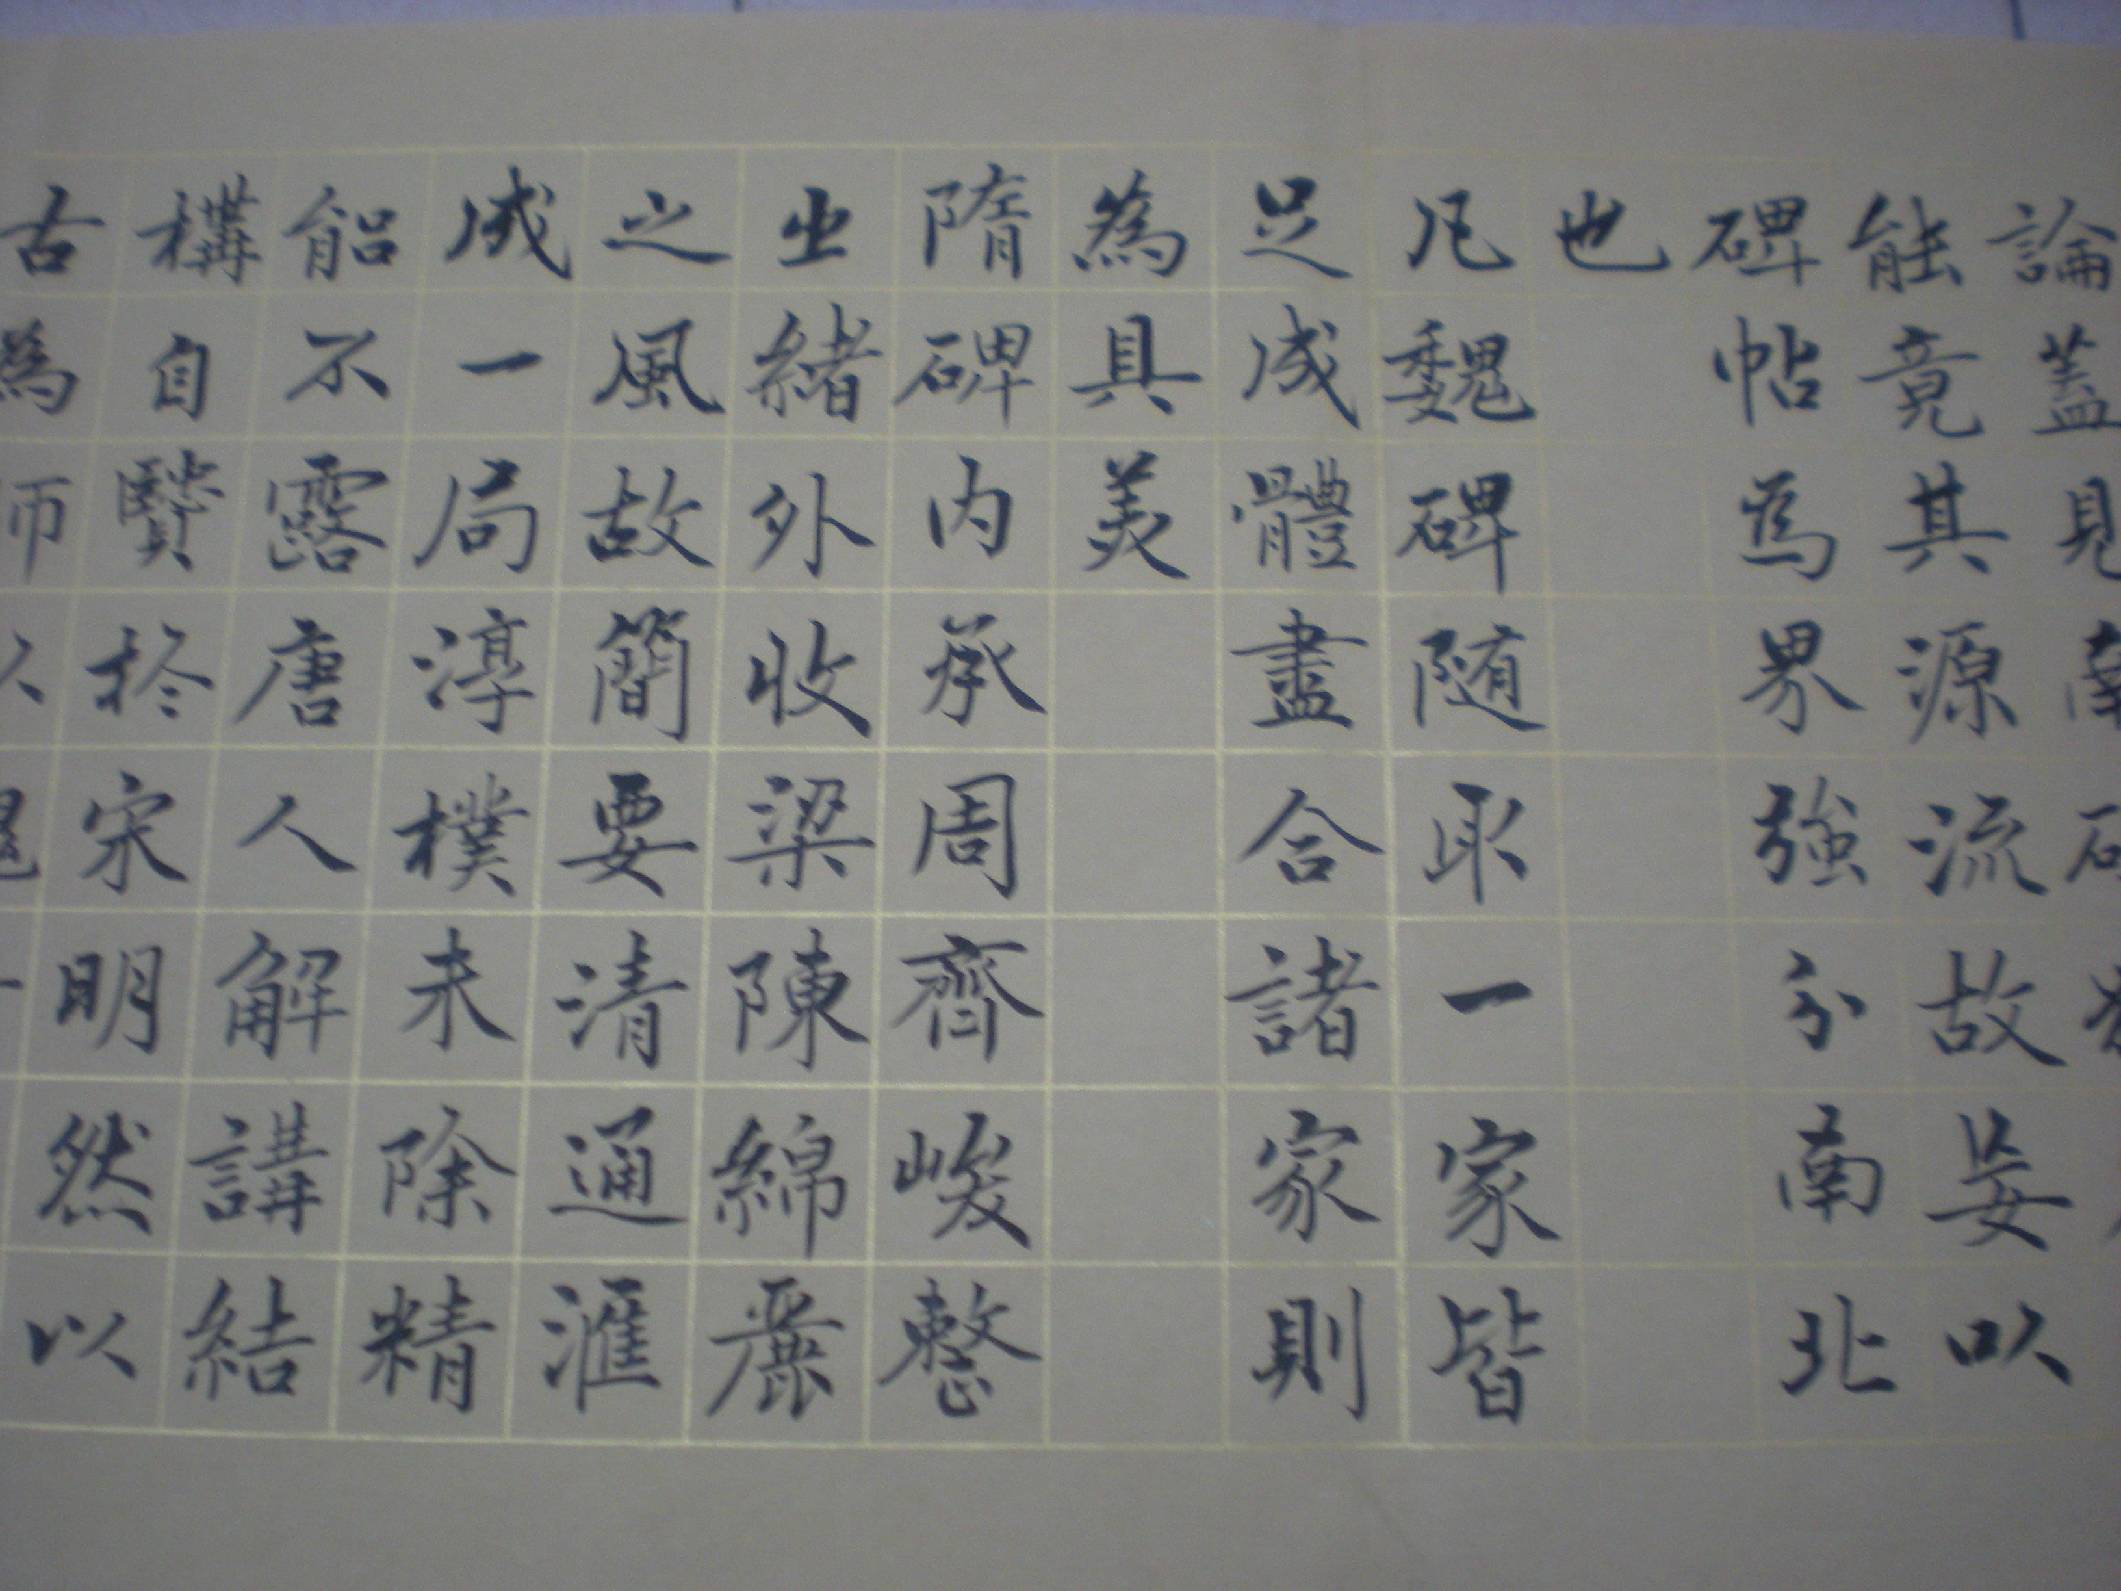 論蓋見南
能竟其源流故妄以
碑帖為界強分南北
也
凡魏碑随取一家皆
足成體盡合諸家則
為具美
隋碑内承周齊峻整
坐緒外收梁陳綿麗
之風故簡要清通滙
成一局淳樸未除精
能不露唐人解講結
構自賢於宋明然以
古為師以魏